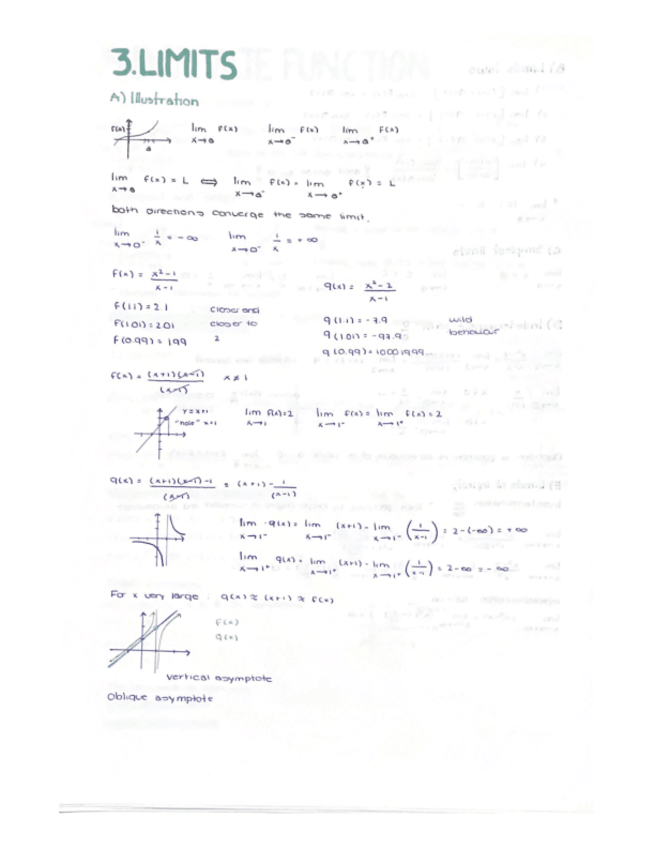 3.LIMITS
A) Illustration
f(x) a lim x→a f(x) lim x→a⁻ f(x) lim x→a⁺ f(x)
lim x→a f(x) = L ⟺ lim x→a⁻ f(x) = lim x→a⁺ f(x) = L
both directions converge the same limit.
lim x→0⁻ 1/x = -∞ lim x→0⁺ 1/x = +∞
f(x) = x²-1 / x-1 g(x) = x²-2 / x-1
f(1.1) = 2.1 closer and g(1.1) = -7.9 wild
f(1.01) = 2.01 closer to g(1.01) = -97.9 behaviour
f(0.99) = 1.99 2 g(0.99) =
f(x) = (x+1)(x-1) / (x-1) x≠1
y=x+1 "hole" x=1 lim x→1 f(x)=2 lim x→1⁻ f(x) = lim x→1⁺ f(x) = 2
g(x) = (x+1)(x-1)-1 / (x-1) = (x+1) - 1/(x-1)
lim x→1⁻ g(x) = lim x→1⁻ (x+1) - lim x→1⁻ (1/x-1) = 2-(-∞) = +∞
lim x→1⁺ g(x) = lim x→1⁺ (x+1) - lim x→1⁺ (1/x-1) = 2-∞ = -∞
For x very large : g(x) ≈ (x+1) ≈ f(x)
f(x)
g(x)
vertical asymptote
Oblique asymptote